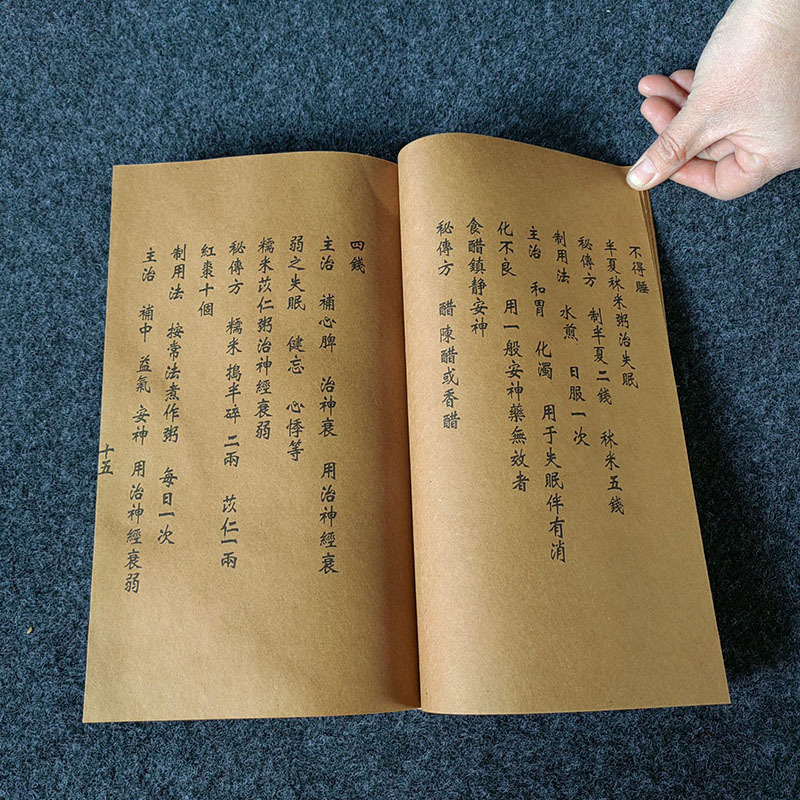 不得睡
半夏秫米粥治失眠
秘傳方 制半夏二錢 秫米五錢
制用法 水煎 日服一次
主治 和胃 化濁 用于失眠伴有消
化不良 用一般安神藥無效者
食醋鎮静安神
秘傳方 醋陳醋或香醋
四錢
主治 補心脾 治神衰 用治神經衰
弱之失眠 健忘 心悸等
糯米苡仁粥治神經衰弱
秘傳方 糯米搗半碎二兩 苡仁一兩
紅棗十個
制用法 按常法煮作粥 每日一次
主治 補中 益氣 安神 用治神經衰弱
十五